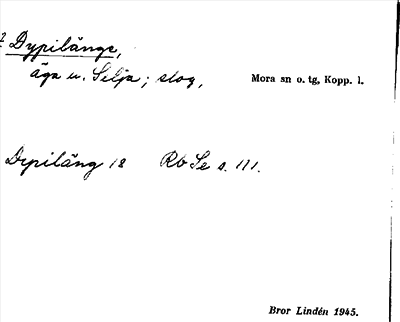 2 Dypilänge,
äga u. Selja; slog,
Mora sn o. tg, Kopp. l.
Dypiläng 18 Rb Se s. 111.
Bror Lindén 1945.